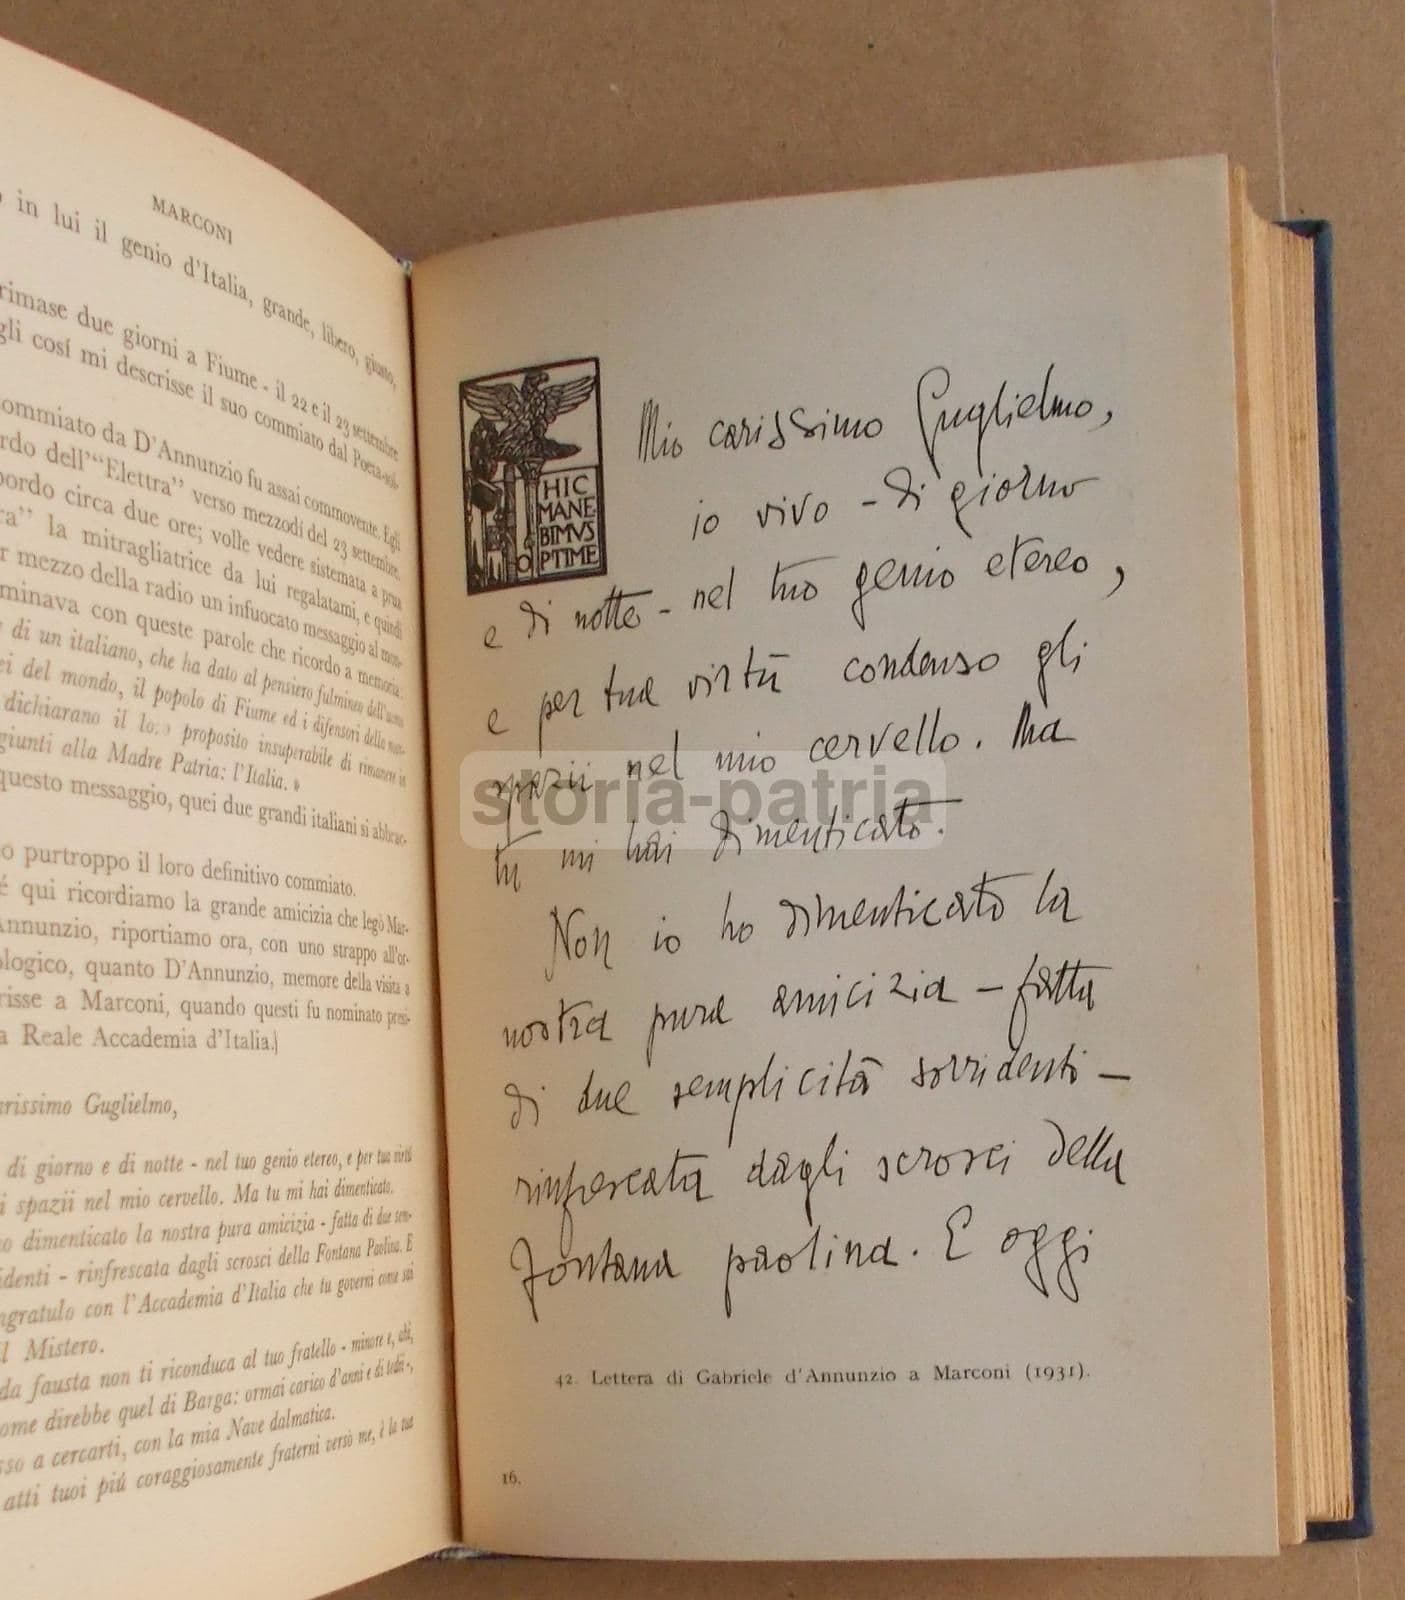 MARCONI
in lui il genio d'Italia, grande, libero, giusto,
rimase due giorni a Fiume - il 22 e il 23 settembre
gli cosí mi descrisse il suo commiato dal Poeta-sol-
ommiato da D'Annunzio fu assai commovente. Egli
rdo dell'"Elettra" verso mezzodí del 23 settembre.
bordo circa due ore; volle vedere sistemata a prua
ra" la mitragliatrice da lui regalatami, e quindi
r mezzo della radio un infuocato messaggio al mon-
minava con queste parole che ricordo a memoria:
di un italiano, che ha dato al pensiero fulmineo dell'uomo
ei del mondo, il popolo di Fiume ed i difensori della
dichiarano il loro proposito insuperabile di rimanere
giunti alla Madre Patria: l'Italia. »
questo messaggio, quei due grandi italiani si abbrac-
o purtroppo il loro definitivo commiato.
é qui ricordiamo la grande amicizia che legò Mar-
Annunzio, riportiamo ora, con uno strappo all'or-
ologico, quanto D'Annunzio, memore della visita a
risse a Marconi, quando questi fu nominato presi-
a Reale Accademia d'Italia.]
rissimo Guglielmo,
di giorno e di notte - nel tuo genio etereo, e per tua virtú
i spazii nel mio cervello. Ma tu mi hai dimenticato.
o dimenticato la nostra pura amicizia - fatta di due sem-
identi - rinfrescata dagli scrosci della Fontana Paolina. E
ngratulo con l'Accademia d'Italia che tu governi come sai
l Mistero.
da fausta non ti riconduca al tuo fratello - minore e, ahi,
ome direbbe quel di Barga: ormai carico d'anni e di
sso a cercarti, con la mia Nave dalmatica.
atti tuoi piú coraggiosamente fraterni verso me, è la tua
HIC
MANE
BIMVS
OPTIME
Mio carissimo Guglielmo,
io vivo - di giorno
e di notte - nel tuo genio etereo,
e per tua virtù condenso gli
spazii nel mio cervello. Ma
tu mi hai dimenticato.
Non io ho dimenticato la
nostra pura amicizia - fatta
di due semplicità sorridenti -
rinfrescata dagli scrosci della
Fontana paolina. E oggi
42. Lettera di Gabriele d'Annunzio a Marconi (1931).
16.
storia-patria